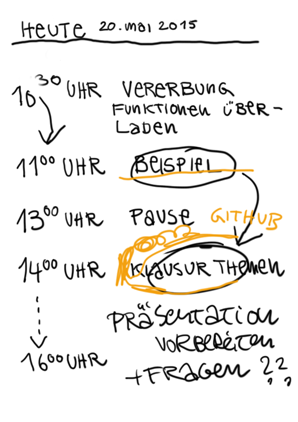 HEUTE 20. mai 2015
10³⁰ UHR VERERBUNG
FUNKTIONEN ÜBER-
LADEN
11⁰⁰ UHR BEISPIEL
13⁰⁰ UHR PAUSE GITHUB
14⁰⁰ UHR KLAUSUR THEMEN
PRÄSENTATION
VORBEREITEN
16⁰⁰ UHR + FRAGEN ??